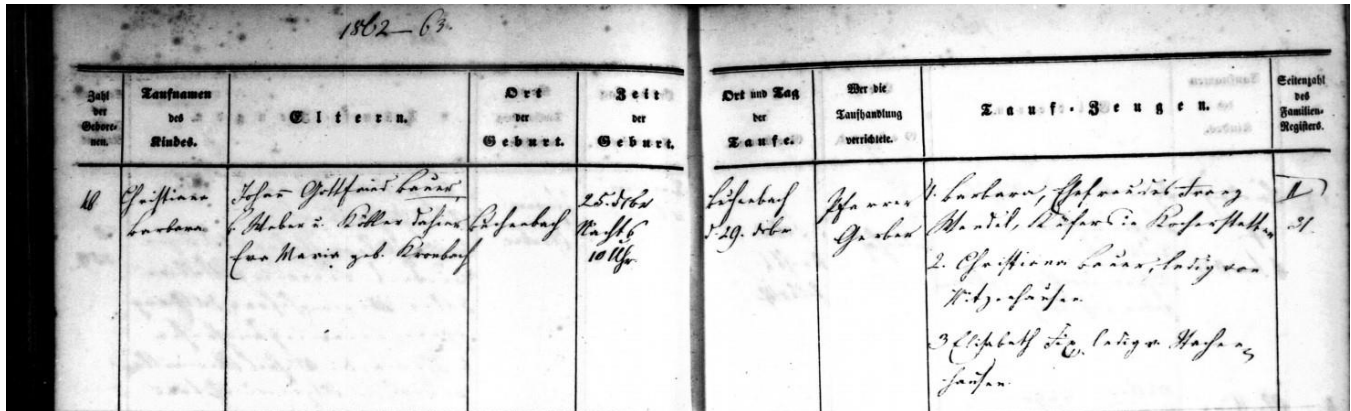 1862–63.
Zahl der Gebore-nen.
Taufnamen des Kindes.
Eltern.
Ort der Geburt.
Zeit der Geburt.
Ort und Tag der Taufe.
Wer die Taufhandlung verrichtete.
Tauf-Zeugen.
Seitenzahl des Familien-Registers.
Christiana
Barbara
Johann Gottfried Bauer,
Weber u. dahier
Eva Maria geb. Kronbach
Buchenbach
25. Dcbr
Nachts
10 Uhr.
Buchenbach
d. 29. Dcbr
Pfarrer
Gerber
1. Barbara, Ehefrau des Franz
Wendel, Küfers in Kocherstetten
2. Christiana Bauer, ledig von
3 Elisabeth ledig v. Stachen-
hausen.
II
31.